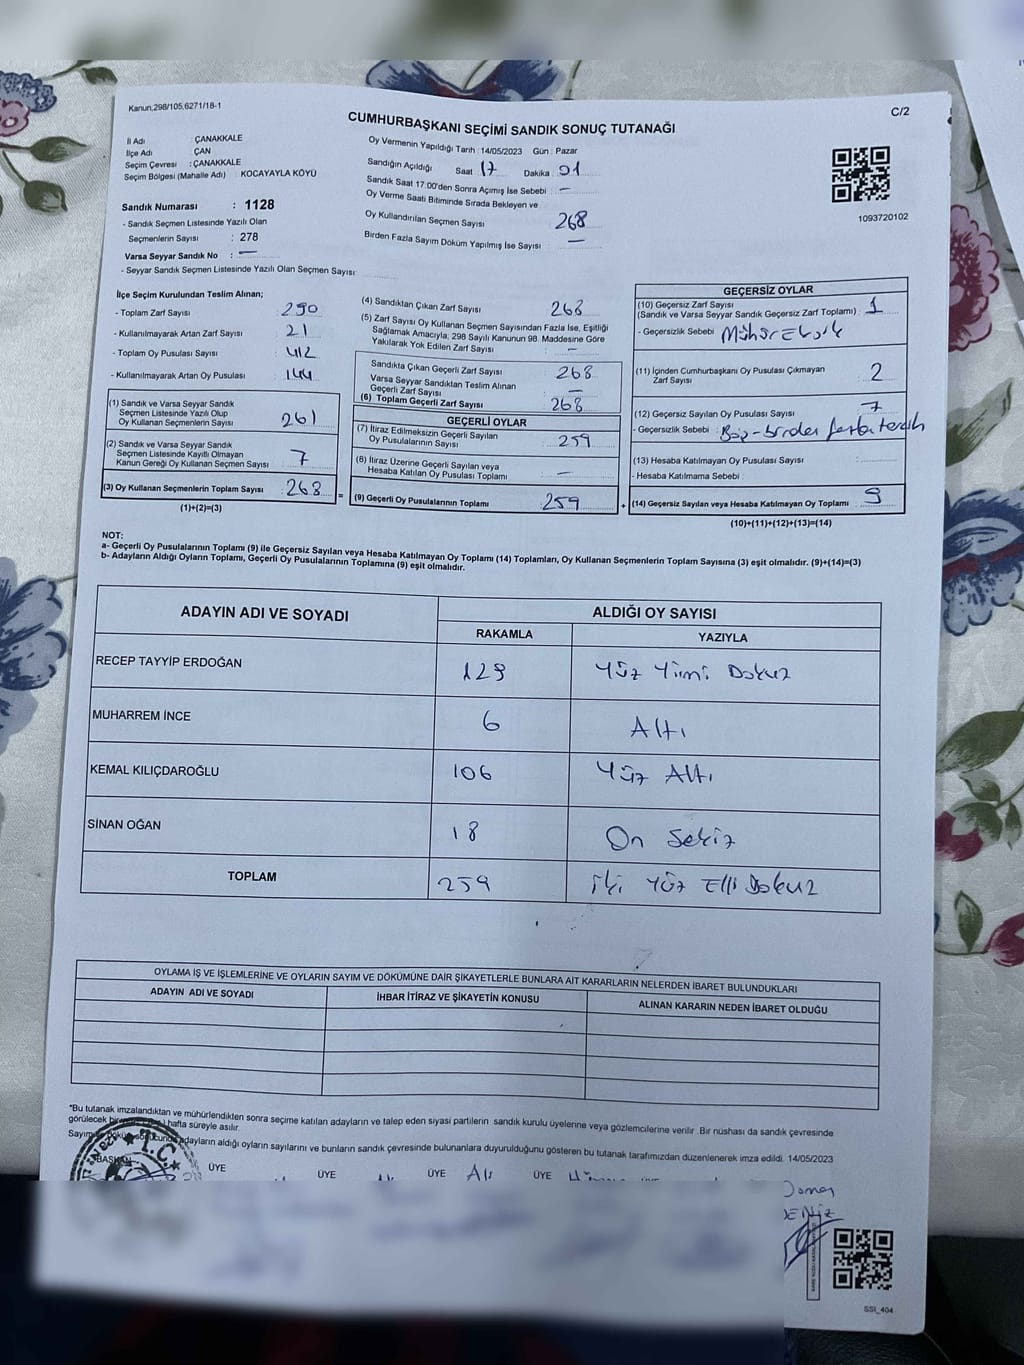 Kanun,298/105,6271/18-1
C/2
CUMHURBAŞKANI SEÇİMİ SANDIK SONUÇ TUTANAĞI
İl Adı : ÇANAKKALE
İlçe Adı : ÇAN
Seçim Çevresi : ÇANAKKALE
Seçim Bölgesi (Mahalle Adı) : KOCAYAYLA KÖYÜ
Sandık Numarası : 1128
- Sandık Seçmen Listesinde Yazılı Olan
Seçmenlerin Sayısı : 278
Varsa Seyyar Sandık No : —
- Seyyar Sandık Seçmen Listesinde Yazılı Olan Seçmen Sayısı:
Oy Vermenin Yapıldığı Tarih :14/05/2023 Gün : Pazar
Sandığın Açıldığı Saat 17 Dakika : 01
Sandık Saat 17.00'den Sonra Açımış İse Sebebi : —
Oy Verme Saati Bitiminde Sırada Bekleyen ve
Oy Kullandırılan Seçmen Sayısı : 268
Birden Fazla Sayım Döküm Yapılmış İse Sayısı : —
1093720102
İlçe Seçim Kurulundan Teslim Alınan;
- Toplam Zarf Sayısı : 290
- Kullanılmayarak Artan Zarf Sayısı : 21
- Toplam Oy Pusulası Sayısı : 412
- Kullanılmayarak Artan Oy Pusulası : 144
(1) Sandık ve Varsa Seyyar Sandık
Seçmen Listesinde Yazılı Olup
Oy Kullanan Seçmenlerin Sayısı : 261
(2) Sandık ve Varsa Seyyar Sandık
Seçmen Listesinde Kayıtlı Olmayan
Kanun Gereği Oy Kullanan Seçmen Sayısı : 7
(3) Oy Kullanan Seçmenlerin Toplam Sayısı : 268
(1)+(2)=(3)
(4) Sandıktan Çıkan Zarf Sayısı : 268
(5) Zarf Sayısı Oy Kullanan Seçmen Sayısından Fazla İse, Eşitliği
Sağlamak Amacıyla; 298 Sayılı Kanunun 98. Maddesine Göre
Yakılarak Yok Edilen Zarf Sayısı : —
Sandıkta Çıkan Geçerli Zarf Sayısı : 268
Varsa Seyyar Sandıktan Teslim Alınan
Geçerli Zarf Sayısı : —
(6) Toplam Geçerli Zarf Sayısı : 268
GEÇERLİ OYLAR
(7) İtiraz Edilmeksizin Geçerli Sayılan
Oy Pusulalarının Sayısı : 259
(8) İtiraz Üzerine Geçerli Sayılan veya
Hesaba Katılan Oy Pusulası Toplamı : —
= (9) Geçerli Oy Pusulalarının Toplamı : 259
GEÇERSİZ OYLAR
(10) Geçersiz Zarf Sayısı
(Sandık ve Varsa Seyyar Sandık Geçersiz Zarf Toplamı) : 1
- Geçersizlik Sebebi :
(11) İçinden Cumhurbaşkanı Oy Pusulası Çıkmayan
Zarf Sayısı : 2
(12) Geçersiz Sayılan Oy Pusulası Sayısı : 7
- Geçersizlik Sebebi : Boş-birden fazla tercih
(13) Hesaba Katılmayan Oy Pusulası Sayısı :
- Hesaba Katılmama Sebebi :
+ (14) Geçersiz Sayılan veya Hesaba Katılmayan Oy Toplamı : 9
(10)+(11)+(12)+(13)=(14)
NOT:
a- Geçerli Oy Pusulalarının Toplamı (9) ile Geçersiz Sayılan veya Hesaba Katılmayan Oy Toplamı (14) Toplamları, Oy Kullanan Seçmenlerin Toplam Sayısına (3) eşit olmalıdır. (9)+(14)=(3)
b- Adayların Aldığı Oyların Toplamı, Geçerli Oy Pusulalarının Toplamına (9) eşit olmalıdır.
ADAYIN ADI VE SOYADI ALDIĞI OY SAYISI
RAKAMLA YAZIYLA
RECEP TAYYİP ERDOĞAN 129 Yüz Yirmi Dokuz
MUHARREM İNCE 6 Altı
KEMAL KILIÇDAROĞLU 106 Yüz Altı
SİNAN OĞAN 18 On Sekiz
TOPLAM 259 iki Yüz Elli Dokuz
OYLAMA İŞ VE İŞLEMLERİNE VE OYLARIN SAYIM VE DÖKÜMÜNE DAİR ŞİKAYETLERLE BUNLARA AİT KARARLARIN NELERDEN İBARET BULUNDUKLARI
ADAYIN ADI VE SOYADI İHBAR İTİRAZ VE ŞİKAYETİN KONUSU ALINAN KARARIN NEDEN İBARET OLDUĞU
*Bu tutanak imzalandıktan ve mühürlendikten sonra seçime katılan adayların ve talep eden siyasi partilerin sandık kurulu üyelerine veya gözlemcilerine verilir. Bir nüshası da sandık çevresinde
görülecek bir hafta süreyle asılır.
adayların aldığı oyların sayılarını ve bunların sandık çevresinde bulunanlara duyurulduğunu gösteren bu tutanak tarafımızdan düzenlenerek imza edildi. 14/05/2023
BAŞKAN ÜYE ÜYE ÜYE ÜYE
T.C.
SSI_404